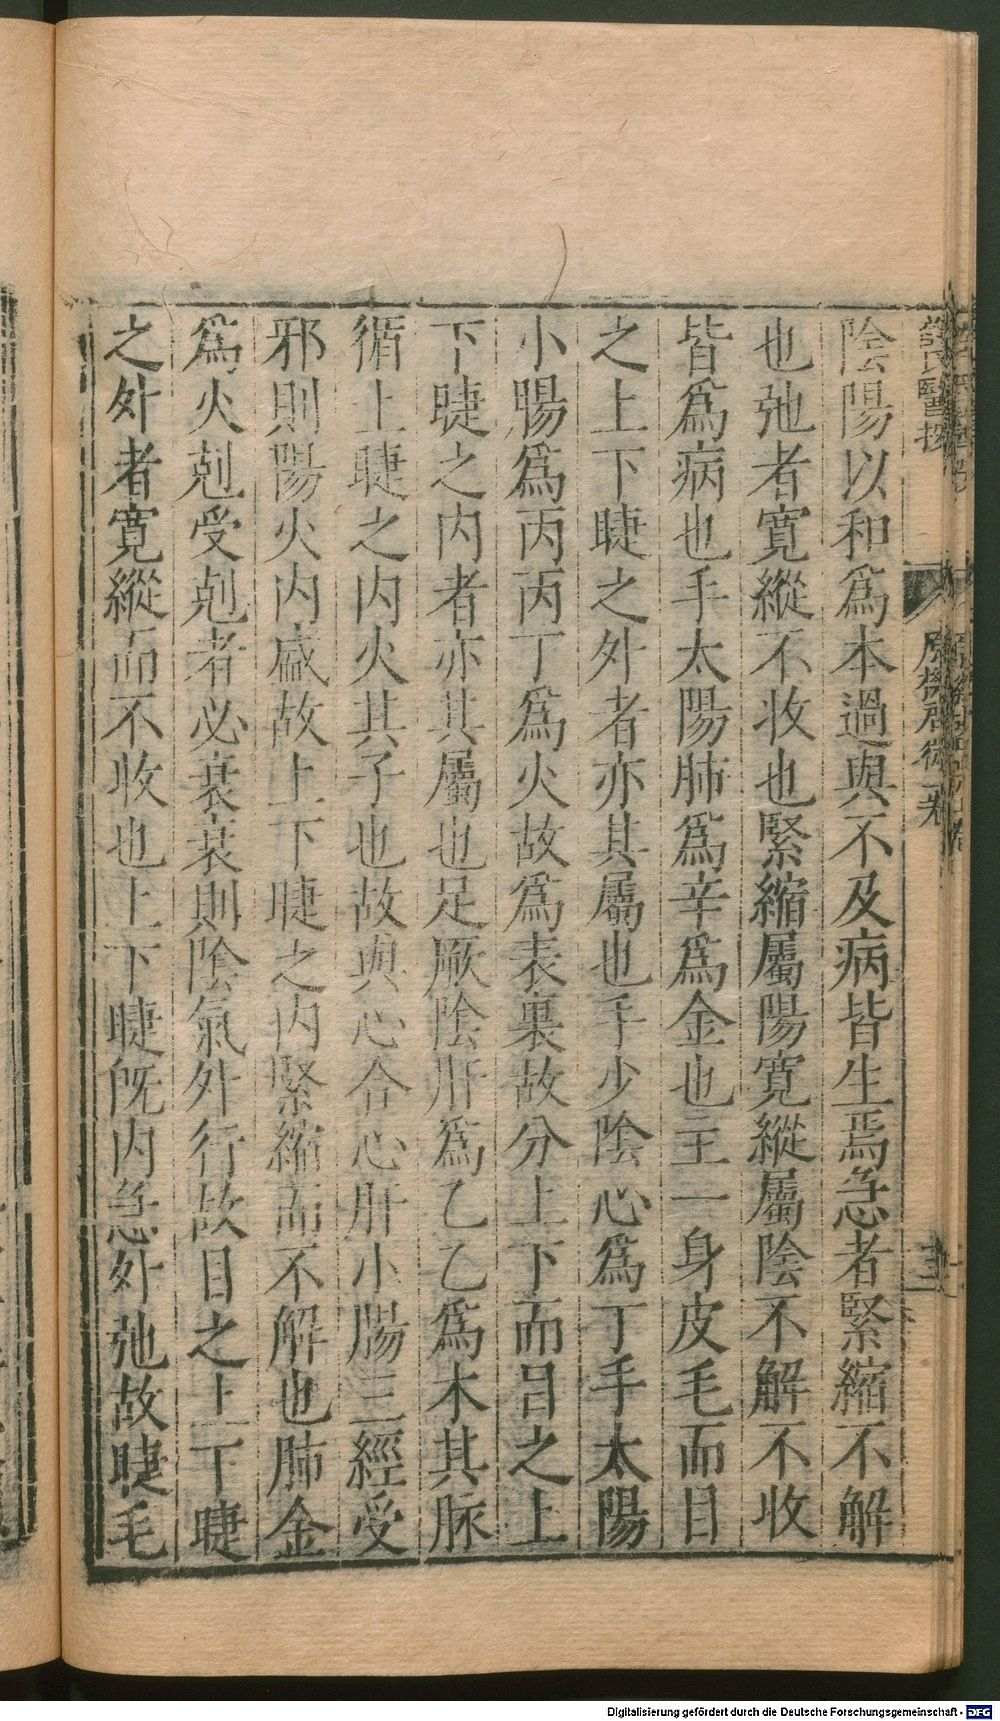 陰陽以和爲本過與不及病皆生焉急者緊縮不解
也弛者寛縱不收也緊縮屬陽寛縱屬陰不解不收
皆爲病也手太陽肺爲辛爲金也主一身皮毛而目
之上下睫之外者亦其屬也手少陰心爲丁手太陽
小腸爲丙丙丁爲火故爲表裏故分上下而目之上
下睫之内者亦其屬也足厥陰肝爲乙乙爲木其脉
循上睫之内火其子也故與心合心肝小腸三經受
邪則陽火内盛故上下睫之内緊縮而不解也肺金
爲火剋受剋者必衰衰則陰氣外行故目之上下睫
之外者寛縱而不收也上下睫旣内急外弛故睫毛
Digitalisierung gefördert durch die Deutsche Forschungsgemeinschaft - DFG